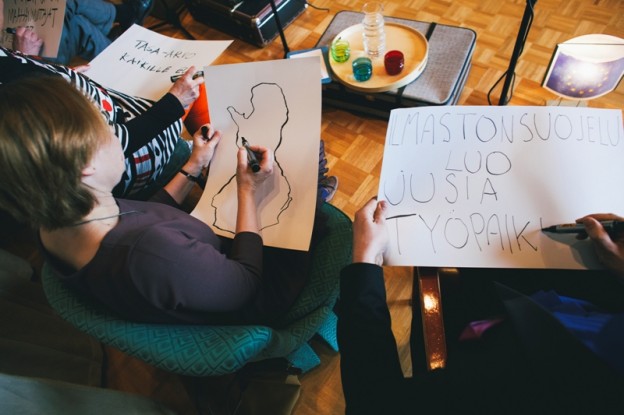 TASA-ARVO
KAIKILLE
ILMASTONSUOJELU
LUO
UUSIA
TYÖPAIK